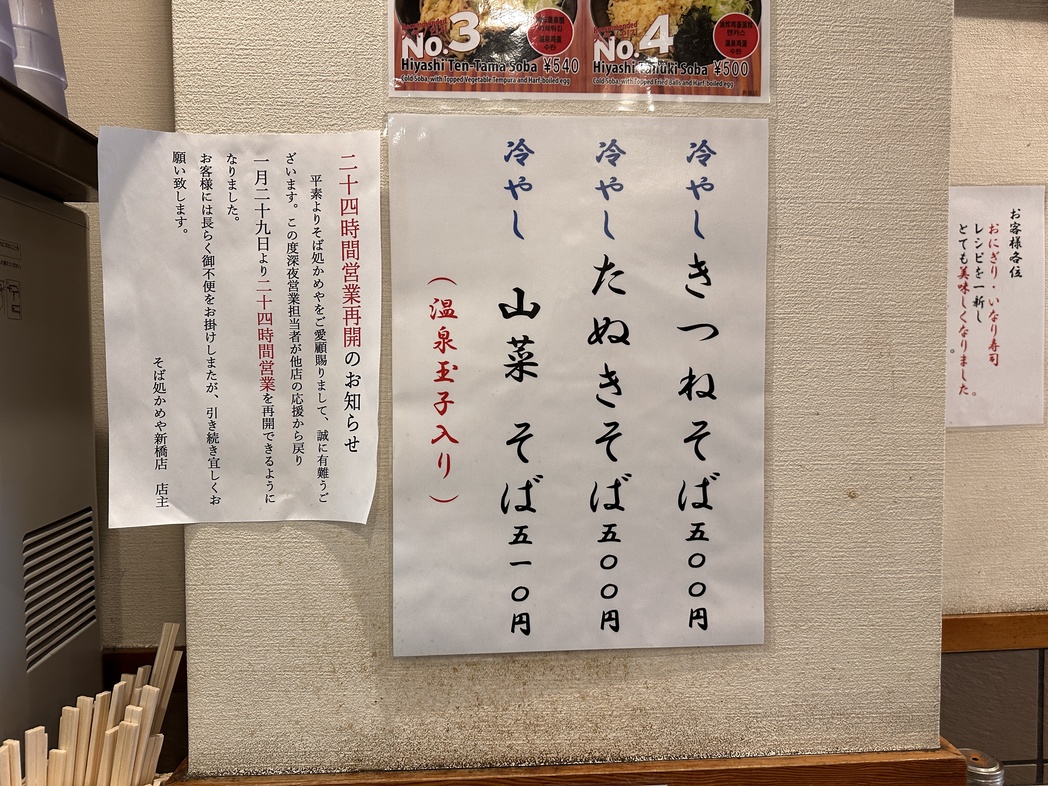 No.3
Hiyashi Ten-Tama Soba ¥540
Cold Soba, with Topped Vegetable Tempura and Harf-boiled egg
No.4
Hiyashi Tanuki Soba ¥500
Cold Soba, with Topped Fried Balls and Harf-boiled egg
冷やしきつねそば五〇〇円
冷やしたぬきそば五〇〇円
冷やし 山菜 そば五一〇円
(温泉玉子入り)
二十四時間営業再開のお知らせ
平素よりそば処かめやをご愛顧賜りまして、誠に有難うご
ざいます。この度深夜営業担当者が他店の応援から戻り
一月二十九日より二十四時間営業を再開できるように
なりました。
お客様には長らく御不便をお掛けしまたが、引き続き宜しくお
願い致します。
そば処かめや新橋店 店主
お客様各位
おにぎり・いなり寿司
レシピを一新し
とても美味しくなりました。
。